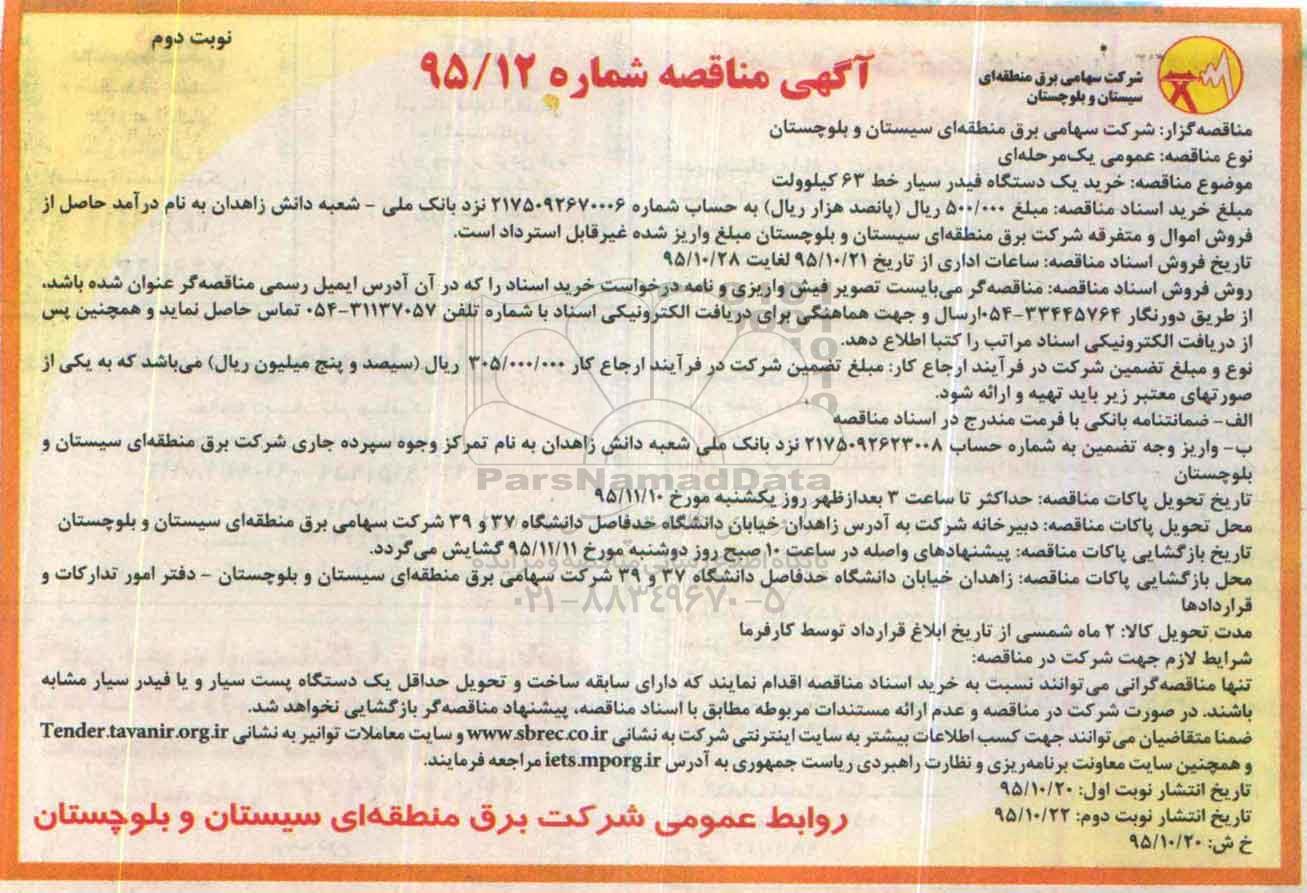 نوبت دوم
شرکت سهامی برق منطقه‌ای
سیستان و بلوچستان
آگهی مناقصه شماره ۹۵/۱۲
مناقصه‌گزار: شرکت سهامی برق منطقه‌ای سیستان و بلوچستان
نوع مناقصه: عمومی یک‌مرحله‌ای
موضوع مناقصه: خرید یک دستگاه فیدر سیار خط ۶۳ کیلوولت
مبلغ خرید اسناد مناقصه: مبلغ ۵۰۰/۰۰۰ ریال (پانصد هزار ریال) به حساب شماره ۲۱۷۵۰۹۲۶۷۰۰۰۶ نزد بانک ملی - شعبه دانش زاهدان به نام درآمد حاصل از
فروش اموال و متفرقه شرکت برق منطقه‌ای سیستان و بلوچستان مبلغ واریز شده غیرقابل استرداد است.
تاریخ فروش اسناد مناقصه: ساعات اداری از تاریخ ۹۵/۱۰/۲۱ لغایت ۹۵/۱۰/۲۸
روش فروش اسناد مناقصه: مناقصه‌گر می‌بایست تصویر فیش واریزی و نامه درخواست خرید اسناد را که در آن آدرس ایمیل رسمی مناقصه‌گر عنوان شده باشد،
از طریق دورنگار ۳۳۴۴۵۷۶۴-۰۵۴ ارسال و جهت هماهنگی برای دریافت الکترونیکی اسناد با شماره تلفن ۳۱۱۳۷۰۵۷-۰۵۴ تماس حاصل نماید و همچنین پس
از دریافت الکترونیکی اسناد مراتب را کتبا اطلاع دهد.
نوع و مبلغ تضمین شرکت در فرآیند ارجاع کار: مبلغ تضمین شرکت در فرآیند ارجاع کار ۳۰۵/۰۰۰/۰۰۰ ریال (سیصد و پنج میلیون ریال) می‌باشد که به یکی از
صورتهای معتبر زیر باید تهیه و ارائه شود.
الف- ضمانتنامه بانکی با فرمت مندرج در اسناد مناقصه
ب- واریز وجه تضمین به شماره حساب ۲۱۷۵۰۹۲۶۲۳۰۰۸ نزد بانک ملی شعبه دانش زاهدان به نام تمرکز وجوه سپرده جاری شرکت برق منطقه‌ای سیستان و
بلوچستان
ParsNamadData
تاریخ تحویل پاکات مناقصه: حداکثر تا ساعت ۳ بعدازظهر روز یکشنبه مورخ ۹۵/۱۱/۱۰
محل تحویل پاکات مناقصه: دبیرخانه شرکت به آدرس زاهدان خیابان دانشگاه حدفاصل دانشگاه ۳۷ و ۳۹ شرکت سهامی برق منطقه‌ای سیستان و بلوچستان
تاریخ بازگشایی پاکات مناقصه: پیشنهادهای واصله در ساعت ۱۰ صبح روز دوشنبه مورخ ۹۵/۱۱/۱۱ گشایش می‌گردد.
محل بازگشایی پاکات مناقصه: زاهدان خیابان دانشگاه حدفاصل دانشگاه ۳۷ و ۳۹ شرکت سهامی برق منطقه‌ای سیستان و بلوچستان - دفتر امور تدارکات و
قراردادها
۰۲۱-۸۸۳۴۹۶۷۰-۵
مدت تحویل کالا: ۲ ماه شمسی از تاریخ ابلاغ قرارداد توسط کارفرما
شرایط لازم جهت شرکت در مناقصه:
تنها مناقصه‌گرانی می‌توانند نسبت به خرید اسناد مناقصه اقدام نمایند که دارای سابقه ساخت و تحویل حداقل یک دستگاه پست سیار و یا فیدر سیار مشابه
باشند. در صورت شرکت در مناقصه و عدم ارائه مستندات مربوطه مطابق با اسناد مناقصه، پیشنهاد مناقصه‌گر بازگشایی نخواهد شد.
ضمنا متقاضیان می‌توانند جهت کسب اطلاعات بیشتر به سایت اینترنتی شرکت به نشانی www.sbrec.co.ir و سایت معاملات توانیر به نشانی Tender.tavanir.org.ir
و همچنین سایت معاونت برنامه‌ریزی و نظارت راهبردی ریاست جمهوری به آدرس iets.mporg.ir مراجعه فرمایند.
تاریخ انتشار نوبت اول: ۹۵/۱۰/۲۰
تاریخ انتشار نوبت دوم: ۹۵/۱۰/۲۲
خ ش: ۹۵/۱۰/۲۰
روابط عمومی شرکت برق منطقه‌ای سیستان و بلوچستان